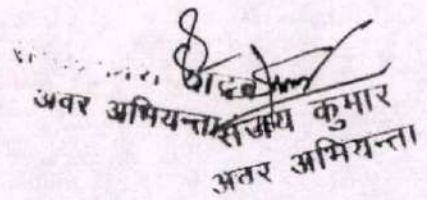 यादव
अवर अभियन्ता
संजय कुमार
अवर अभियन्ता